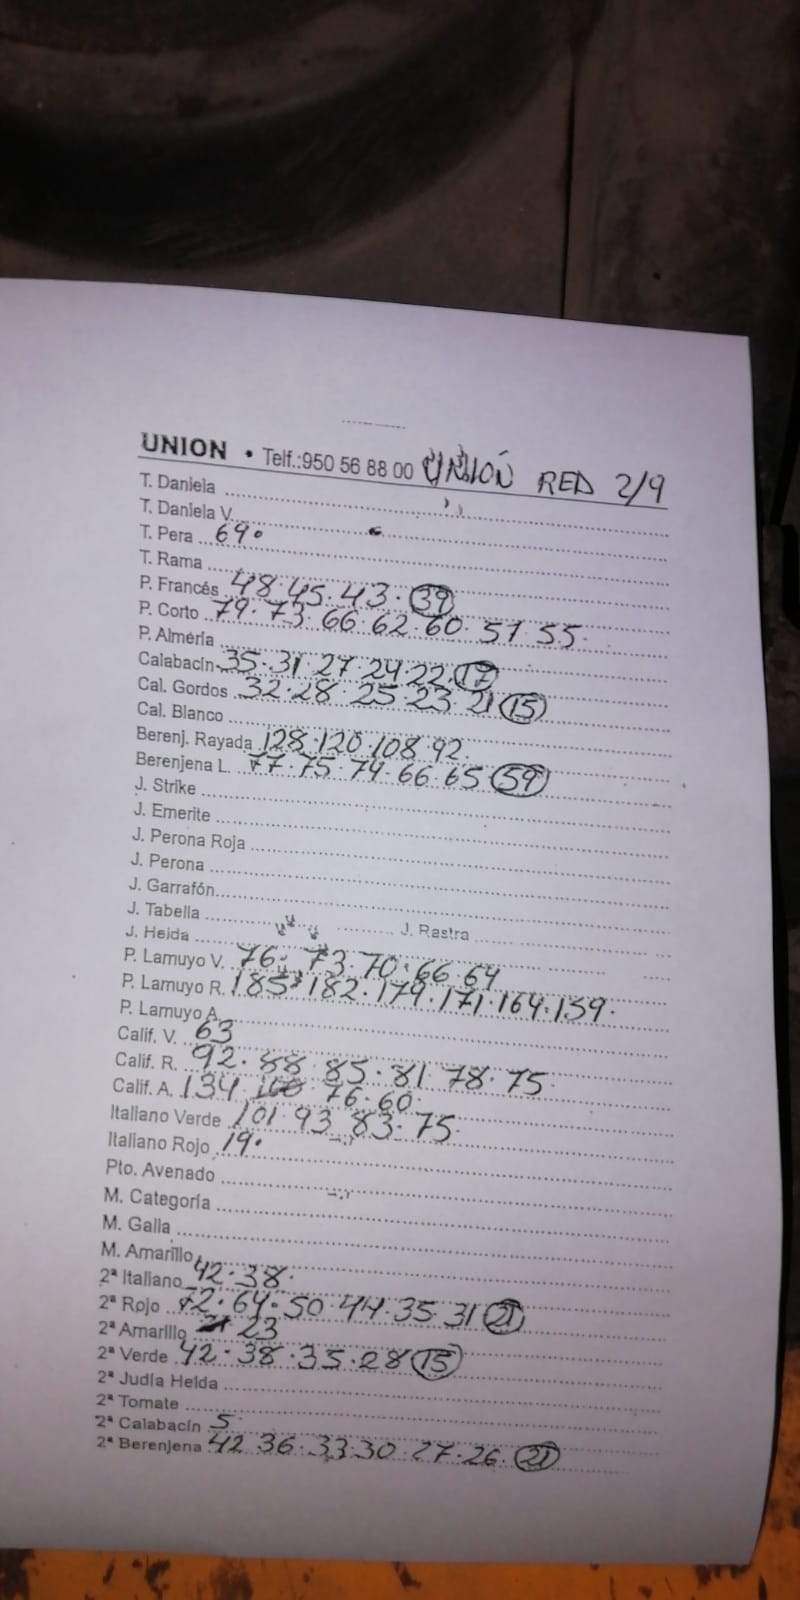 UNION • Telf.:950 56 88 00 UNIÓN RED 2/9
T. Daniela
T. Daniela V.
T. Pera 69.
T. Rama
P. Francés 48.45.43.(39)
P. Corto 79.73.66.62.60.57 55.
P. Almería
Calabacín 35.31 27.24.22.(17)
Cal. Gordos 32.28.25.23.21 (15)
Cal. Blanco
Berenj. Rayada 128.120.108.92.
Berenjena L. 77.75.74.66.65 (59)
J. Strike
J. Emerite
J. Perona Roja
J. Perona
J. Garrafón
J. Tabella J. Rastra
J. Helda
P. Lamuyo V. 76. 73.70.66.64
P. Lamuyo R. 185.182.179.171.164.159.
P. Lamuyo A.
Calif. V. 63
Calif. R. 92.88 85.81 78.75.
Calif. A. 134 76.60.
Italiano Verde 101.93 83.75.
Italiano Rojo 19.
Pto. Avenado
M. Categoría
M. Galia
M. Amarillo
2ª Italiano 42.38.
2ª Rojo 72.64.50.44.35 31 (21)
2ª Amarillo 23
2ª Verde 42.38.35.28 (15)
2ª Judía Helda
2ª Tomate
2ª Calabacín 5
2ª Berenjena 42 36.33.30 27.26.(21)